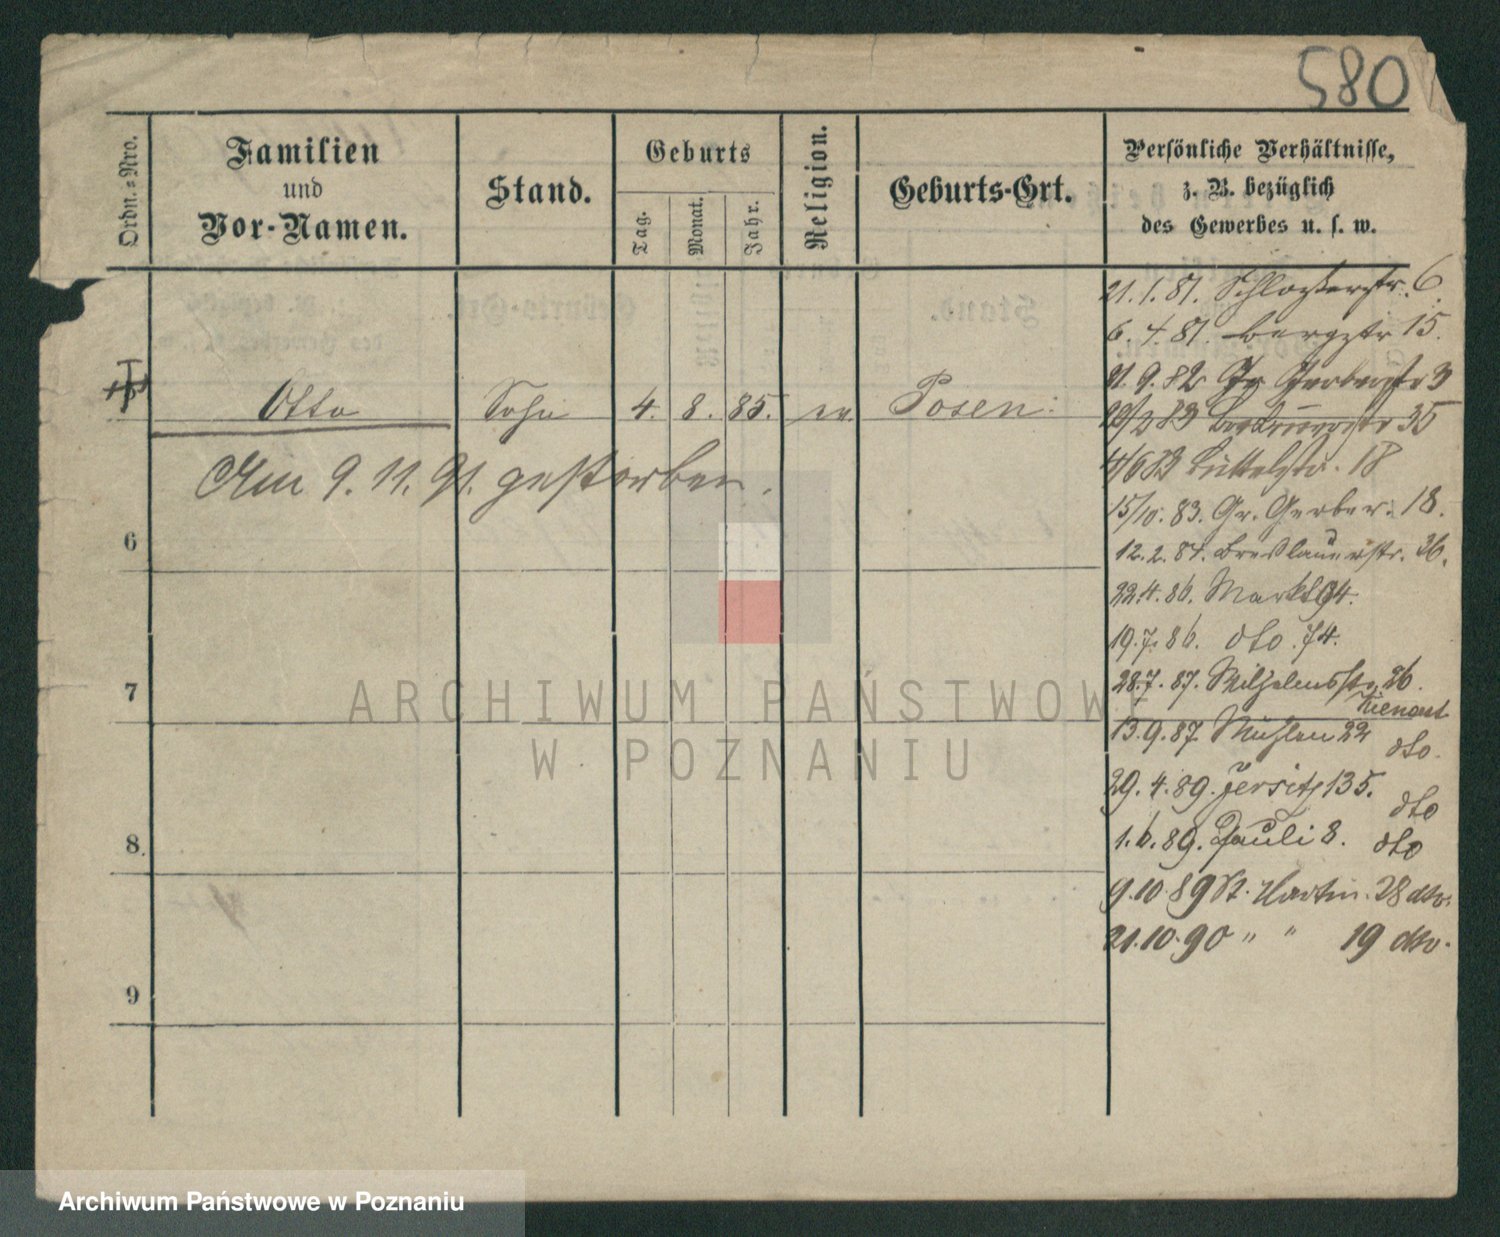 580
Ordn.-Nro.
Familien
und
Vor-Namen.
Stand.
Geburts
Tag.
Monat.
Jahr.
Religion.
Geburts-Ort.
Persönliche Verhältnisse,
z. B. bezüglich
des Gewerbes u. s. w.
Otto Sohn 4. 8. 85. ev. Posen.
Am 9. 11. 91. gestorben.
6
7
8.
9
21. 1. 81. Schlosserstr. 6.
6. 4. 81. Bergstr 15.
21. 9. 82 Gr Gerberstr 3
35
4/6 83 Büttelstr. 18
15/10. 83. Gr. Gerber. 18.
12. 2. 84. Breslauerstr. 36.
22. 4. 86. Markt 94.
19. 7. 86. dto. 74.
28. 7. 87. Wilhelmsstr. 26.
13. 9. 87. Mühlen 22 dto.
29. 4. 89. Jersitz 135. dto
1. 6. 89. Pauli 8. dto
9. 10. 89 St. Martin. 28 dto.
21. 10. 90 " " 19 dto.
ARCHIWUM PAŃSTWOWE
W POZNANIU
Archiwum Państwowe w Poznaniu